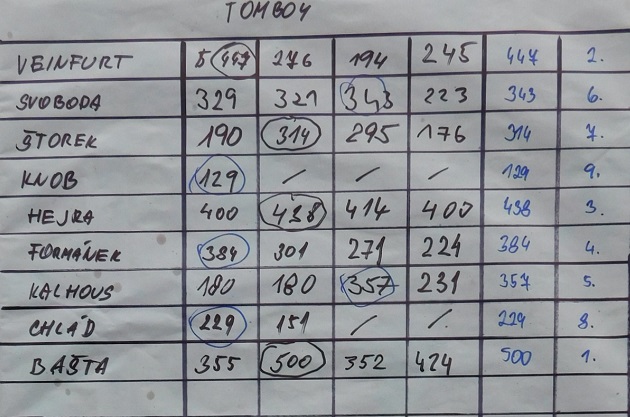 TOMBOY
VEINFURT 447 276 194 245 447 2.
SVOBODA 329 321 343 223 343 6.
ŠTOREK 190 314 295 176 314 7.
KNOB 129 / / / 129 9.
HEJRA 400 438 414 400 438 3.
FORMÁNEK 384 301 271 224 384 4.
KALHOUS 180 180 357 231 357 5.
CHLÁD 229 151 / / 229 8.
BAŠTA 355 500 352 424 500 1.